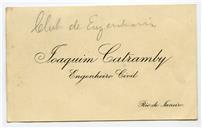 Club de Engenharia
Joaquim Catramby
Engenheiro Civil
Rio de Janeiro